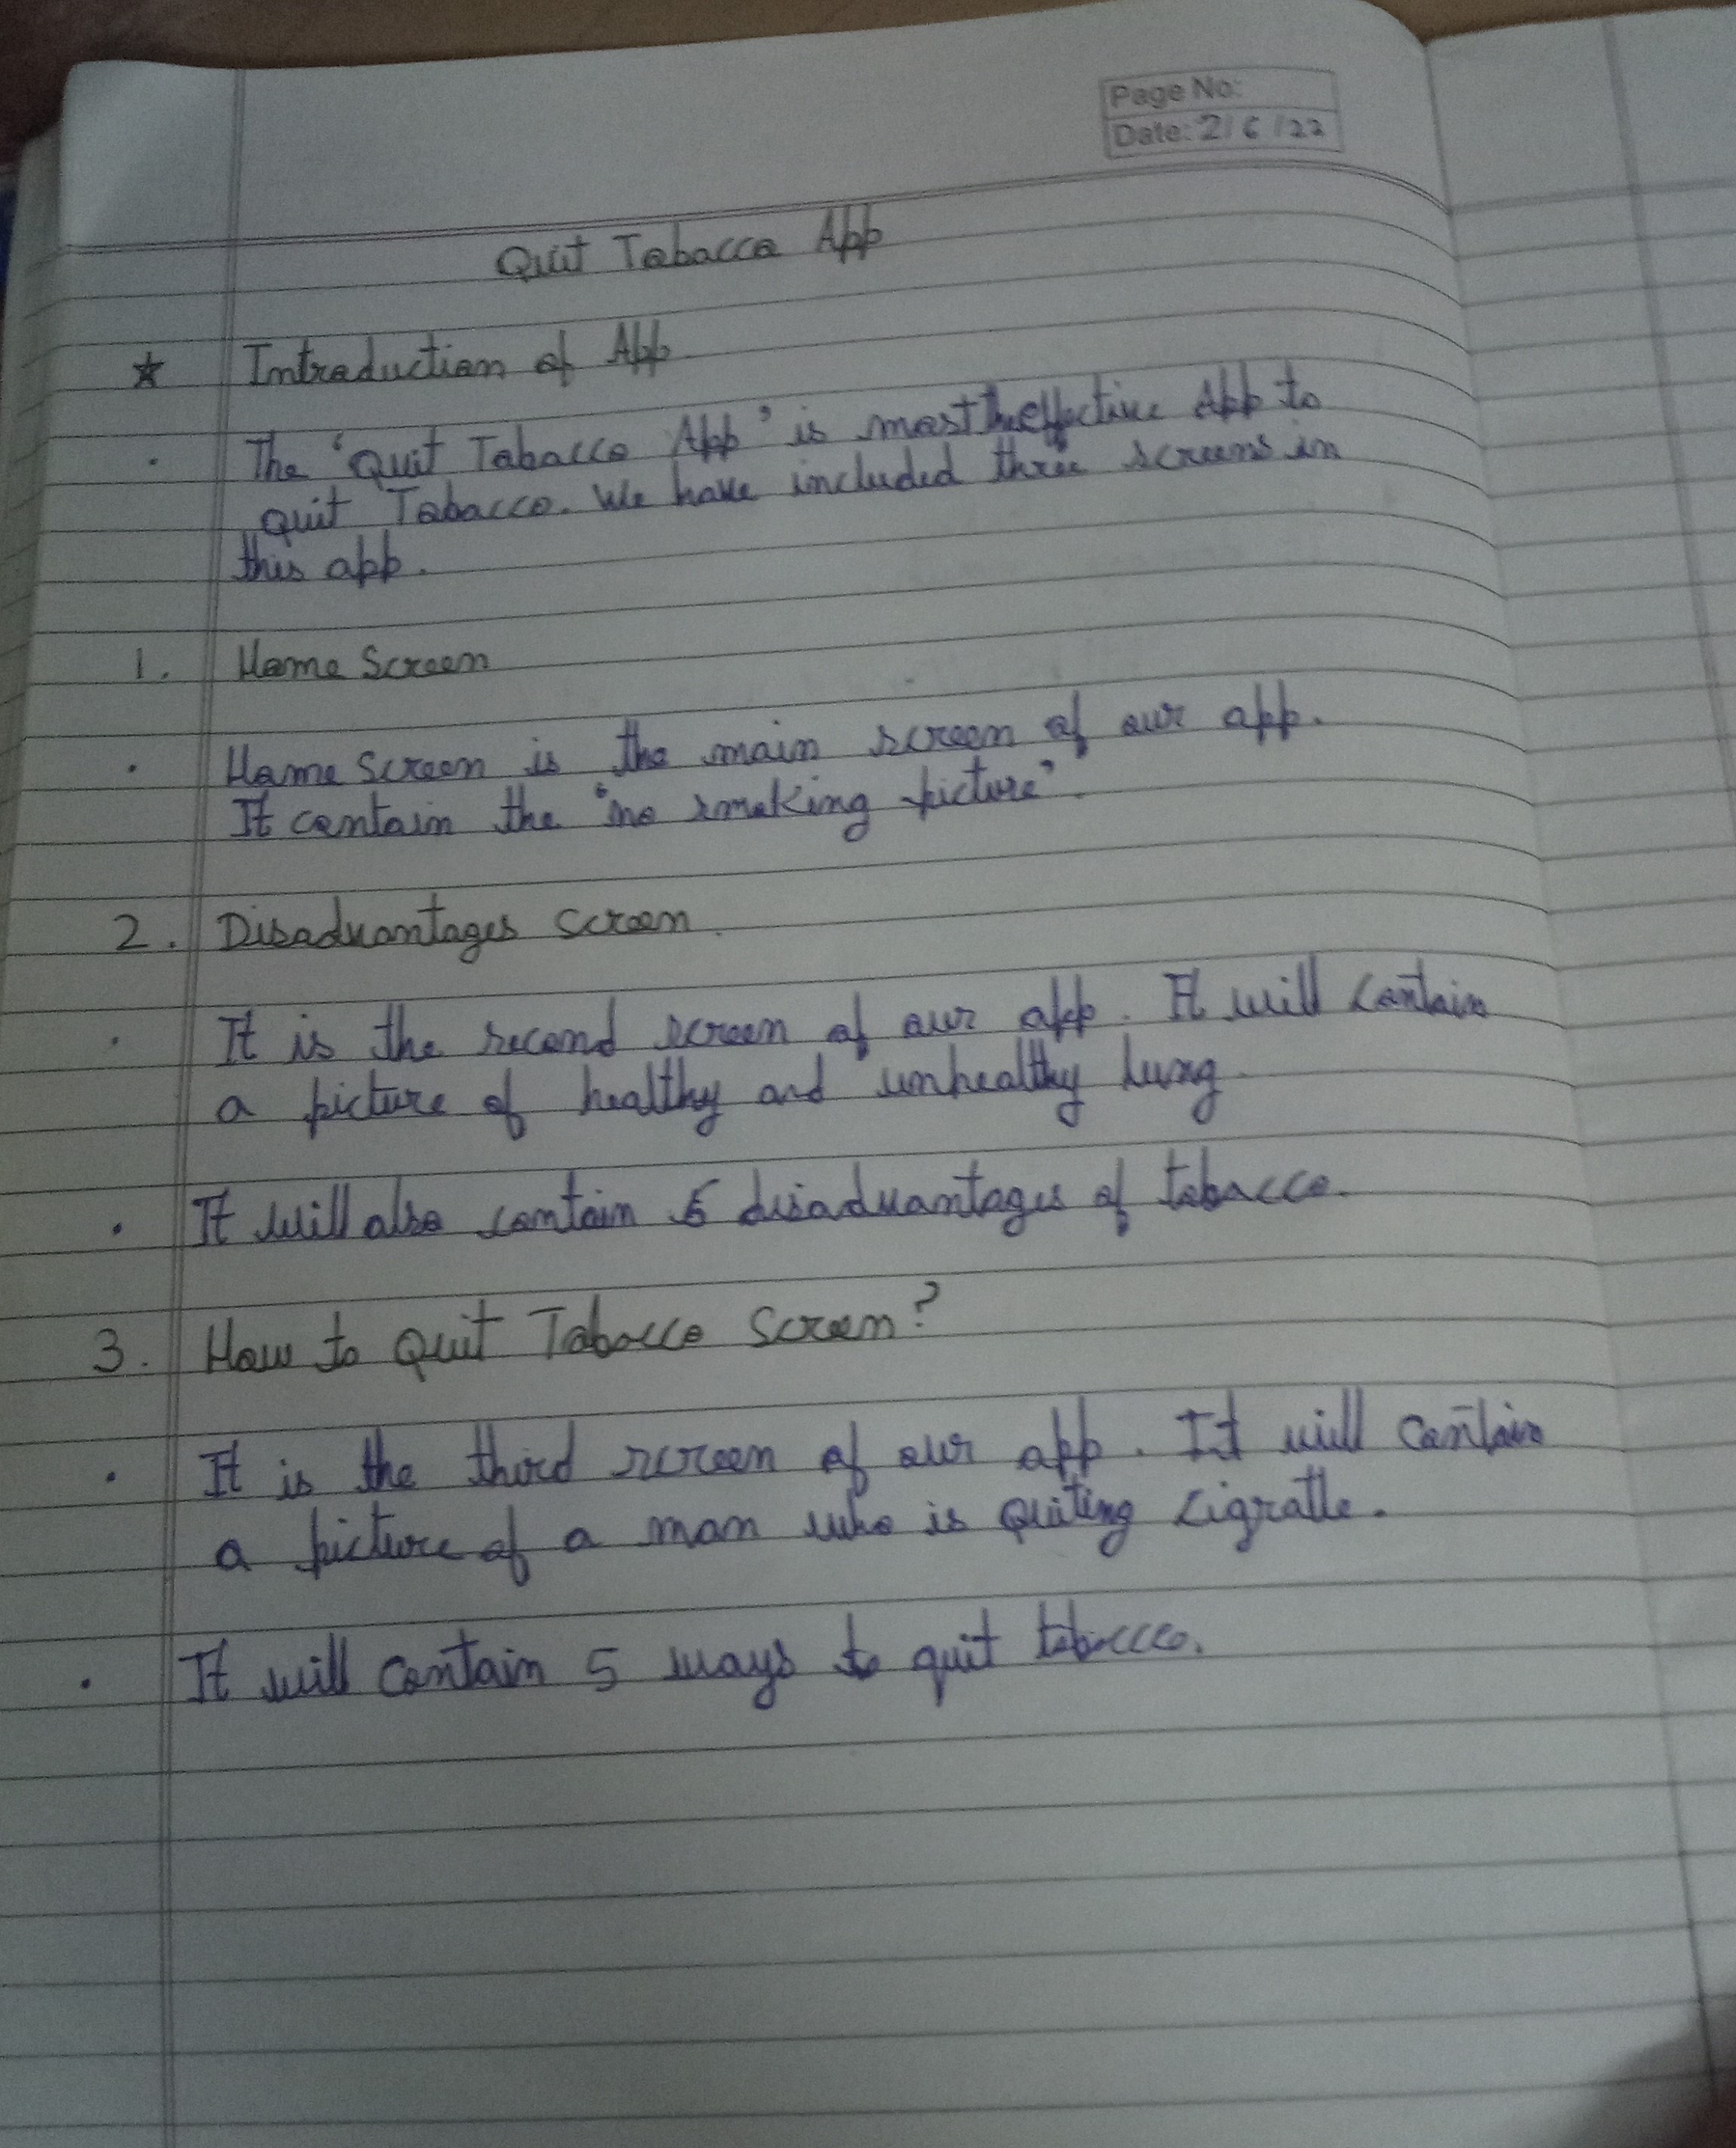 Page No:
Date: 2/6/22
Quit Tobacco App
★ Introduction of App
· The 'Quit Tobacco App' is most the effective App to
quit Tobacco. We have included three screens in
this app.
1. Home Screen
· Home Screen is the main screen of our app.
It contain the 'no smoking picture'.
2. Disadvantages screen.
· It is the second screen of our app. It will contain
a picture of healthy and unhealthy lung
· It will also contain 5 disadvantages of tobacco.
3. How to Quit Tobacco Screen?
· It is the third screen of our app. It will contain
a picture of a man who is quiting cigratte.
· It will contain 5 ways to quit tobacco.